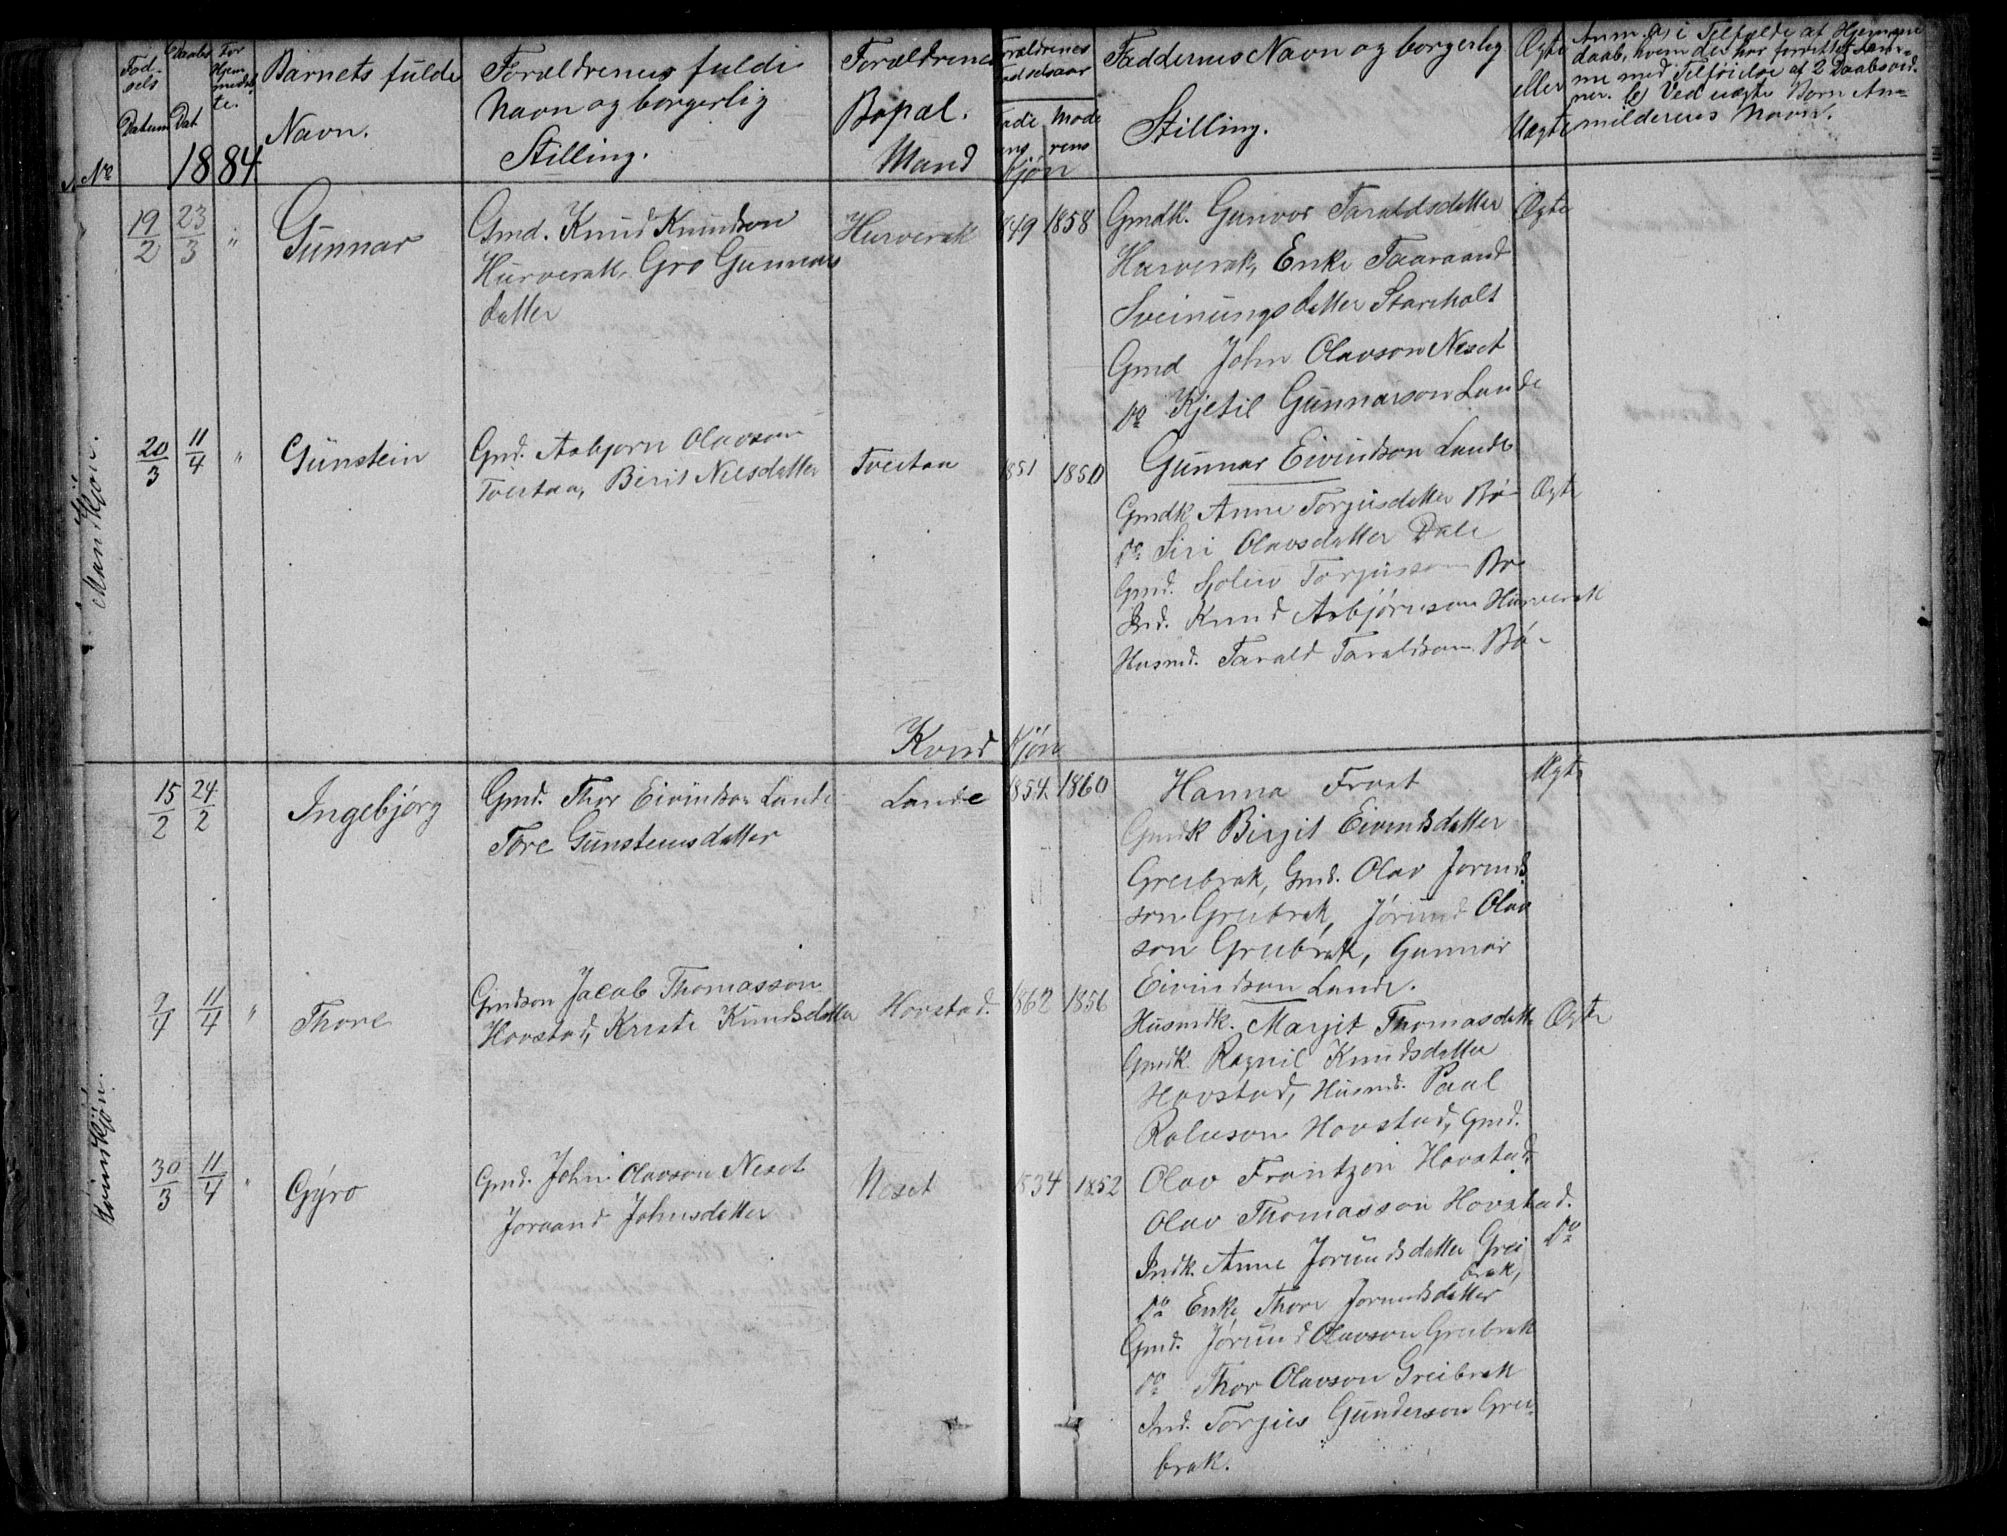 Fød-
sels
Datum
Daabs
Dat
For
Hjem
meds
te.
Barnets fulde
Navn.
Forældrenes fulde
Navn og borgerlig
Stilling.
Forældrenes
Bopæl.
Forældrenes
Fødselsaar
Fade
rens
Mode
rens
Faddernes Navn og borgerlig
Stilling.
Ægte
eller
Uægte
Anm. a) i Tilfælde af Hjemme
daab, hvem der har forrettet sam-
me med Tilføielse af 2 Daabsvid-
ner. b) Ved uægte Børn An-
milderens Navn.
No 1884
Mand Kjøn
Mandkjøn.
19/2 23/3 " Gunnar
Gmd. Knud Knudson
Hurverak, Gro Gunnars
datter
Hurverak
1849 1858
Gmdk. Gunvor Taraldsdatter
Hurverak, Enke Taaraand
Sveinungsdatter Stareholt
Gmd John Olavson Neset
Do Kjetil Gunnarson Lande
Gunnar Eivindson Lande
Ægte
20/3 11/4 " Gunstein
Gmd. Asbjorn Olavson
Tveitaa, Berit Nilsdatter
Tveitaa
1851 1850
Gmdk Anne Torjusdatter Bø
Do Siri Olavsdatter Dale
Gmd. Torjusson Bø
Ind. Knud Asbjørnson Hurverak
Husmd. Tarald Taraldson Bø
Ægte
Kvind Kjøn
Kvindkjøn.
15/2 24/2 Ingebjørg
Gmd. Thor Eivindson Lande
Tore Gunsteinsdatter
Lande
1854 1860
Hanna Frost
Gmdk Birgit Eivindsdatter
Greibrak, Gmd. Olav Jorund
son Greibrak, Jørund Olav
son Greibrak, Gunnar
Eivindson Lande.
Ægte
9/4 11/4 " Thore
Gmdson Jacob Thomasson
Hovstad, Kristi Knudsdatter
Hovstad.
1862 1856
Husmdk. Margit Thomasdatt
Gmdk. Ragnil Knudsdatter
Hovstad, Husmd. Paal
Roleivson Hovstad, Gmd.
Olav Frantzon Hovstad
Olav Thomasson Hovstad.
Ægte
30/3 11/4 " Gyro
Gmd. John Olavson Neset
Joraand Johnsdatter
Neset
1834 1852
Indk. Anne Jorundsdatter Grei
brak,
Do Enke Thore Jorundsdatter
Gmd. Jørund Olavson Greibrak
Do Thor Olavson Greibrak
Ind. Torjus Gunderson Grei-
brak.
Do